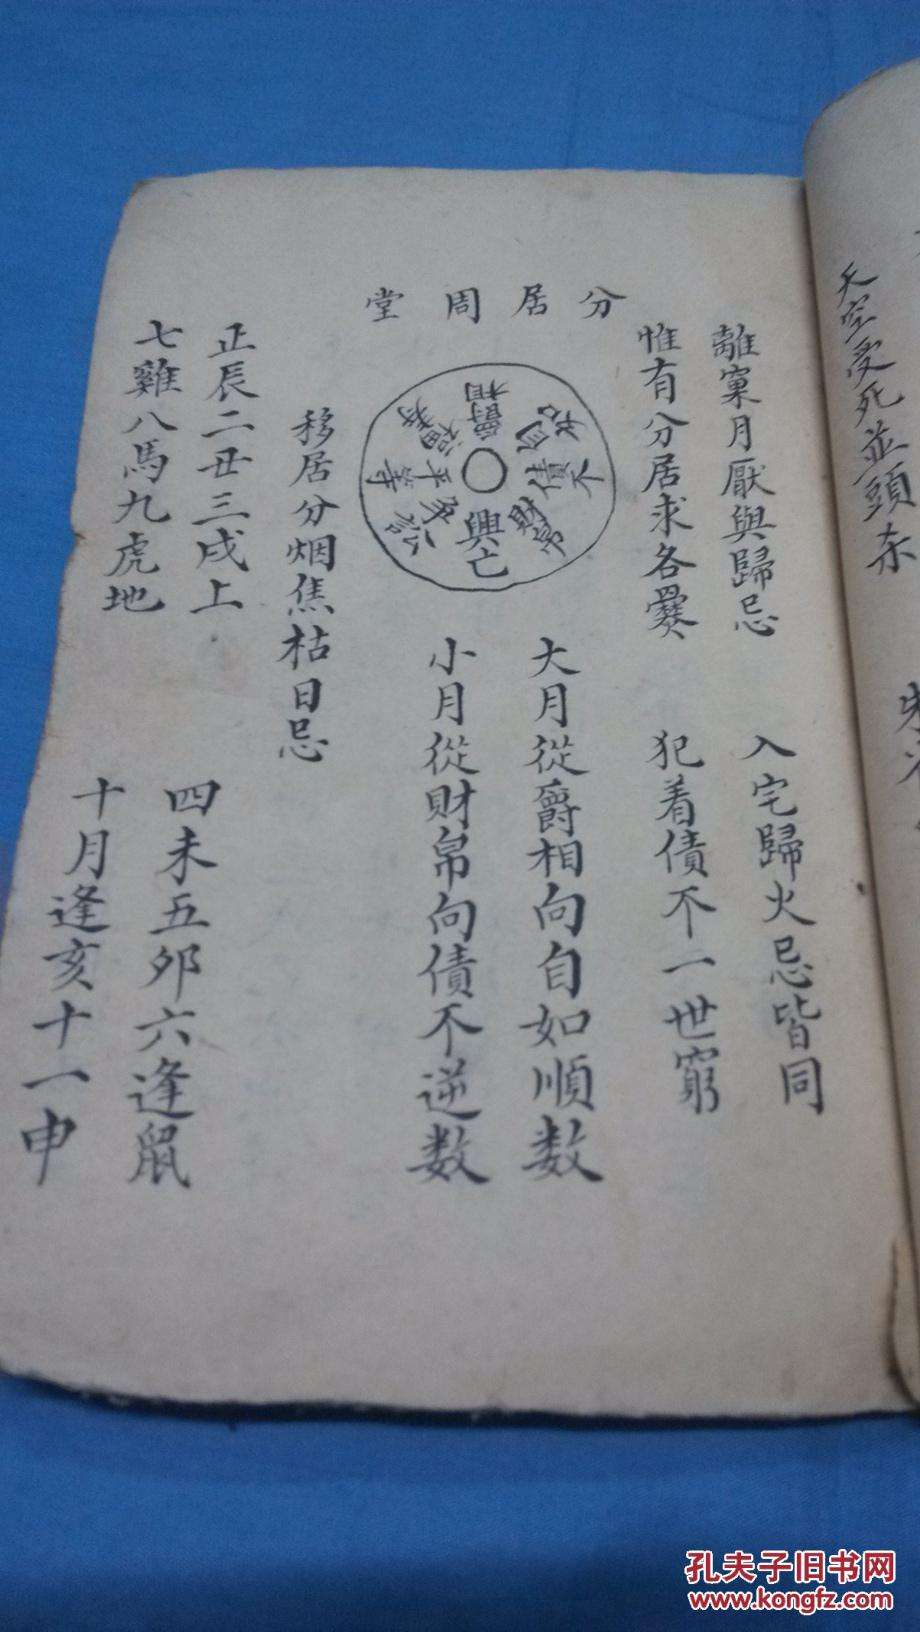 天空受死並頭杀
離窠月厭與歸忌
入宅歸火忌皆同
惟有分居求各爨
犯着債不一世窮
分居周堂
爵相
自如
債不
財帛
興亡
平等
福寿
大月從爵相向自如順数
小月從財帛向債不逆数
移居分烟焦枯日忌
正辰二丑三戌上
四未五夘六逢鼠
七雞八馬九虎地
十月逢亥十一申
孔夫子旧书网
www.kongfz.com